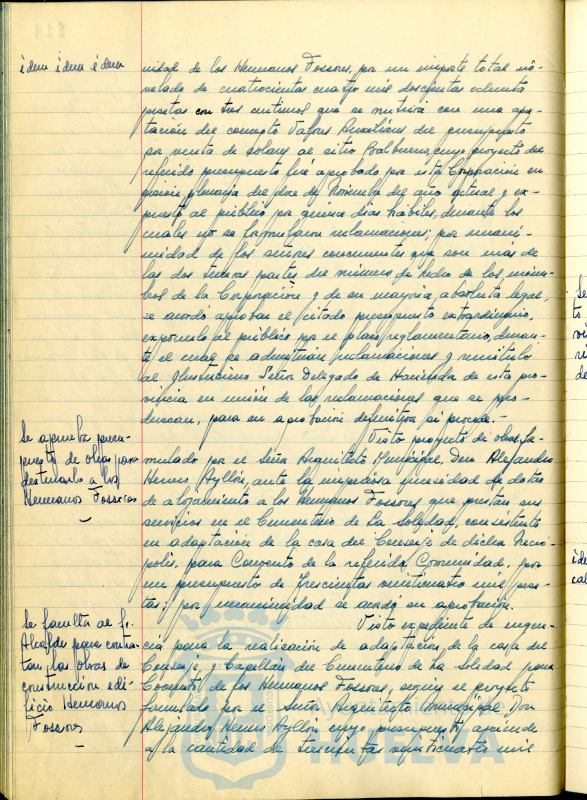 idem idem idem
nidad de los Hermanos Fossores, por un importe total ni-
velado de cuatrocientas cuatro mil doscientas ochenta
pesetas con tres centimos que se nutrirá con una apor-
tación del concepto Valores Auxiliares del presupuesto
por venta de solares al sitio Balbuena, cuyo proyecto del
referido presupuesto fué aprobado por esta Corporación en
sesión plenaria del doce de Noviembre del año actual y ex-
puesto al público por quince días hábiles, durante los
cuales no se formularon reclamaciones; por unani-
midad de los señores concurrentes que son más de
las dos terceras partes del número de hecho de los miem-
bros de la Corporación y de su mayoría absoluta legal,
se acordó aprobar el citado presupuesto extraordinario,
exponerlo al público por el plazo reglamentario, duran-
te el cual se admitirán reclamaciones y remitirlo
al Ilustrísimo Señor Delegado de Hacienda de esta pro-
vincia en unión de las reclamaciones que se pro-
duzcan, para su aprobación definitiva si procede.-
Se aprueba presu-
puesto de obras para
destinarlo a los
Hermanos Fossores
Visto proyecto de obras for-
mulado por el Señor Arquitecto Municipal, Don Alejandro
Herrero Ayllón, ante la imperiosa necesidad de dotar
de alojamiento a los Hermanos Fossores que prestan sus
servicios en el Cementerio de la Soledad, consistente
en adaptación de la casa del Conserje de dicha Necró-
polis, para Convento de la referida Comunidad, por
un presupuesto de trescientas veinticuatro mil pese-
tas; por unanimidad se acordó su aprobación.
Se faculta al Sr.
Alcalde para contra-
tar las obras de
construcción edi-
ficio Hermanos
Fossores
Visto expediente de urgen-
cia para la realización de adaptación de la casa del
Conserje y Capellán del Cementerio de la Soledad para
Convento de los Hermanos Fossores, según el proyecto
formulado por el Señor Arquitecto Municipal Don
Alejandro Herrero Ayllón cuyo presupuesto asciende
a la cantidad de trescientas veinticuatro mil
HUELVA